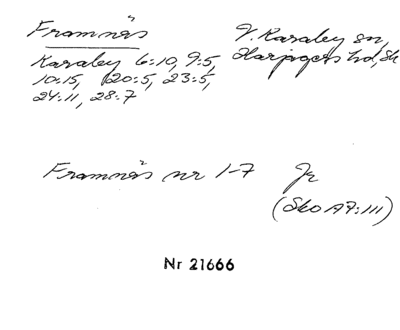 Framnäs
V. Karaby sn,
Karaby 6:10, 9:5, Harjagers hd, Sk
10:15, 120:5, 23:5,
24:11, 28:7
Framnäs nr 1-7 Jr
(Sko A7:III)
Nr 21666